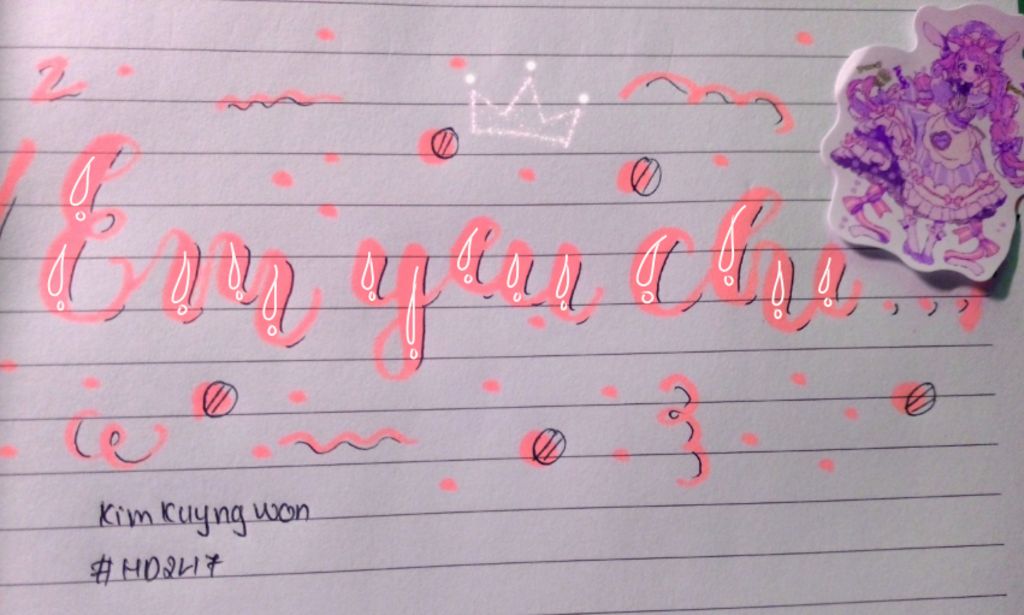 Em yêu chị...,
Kim Kuyng Won
#HD2417